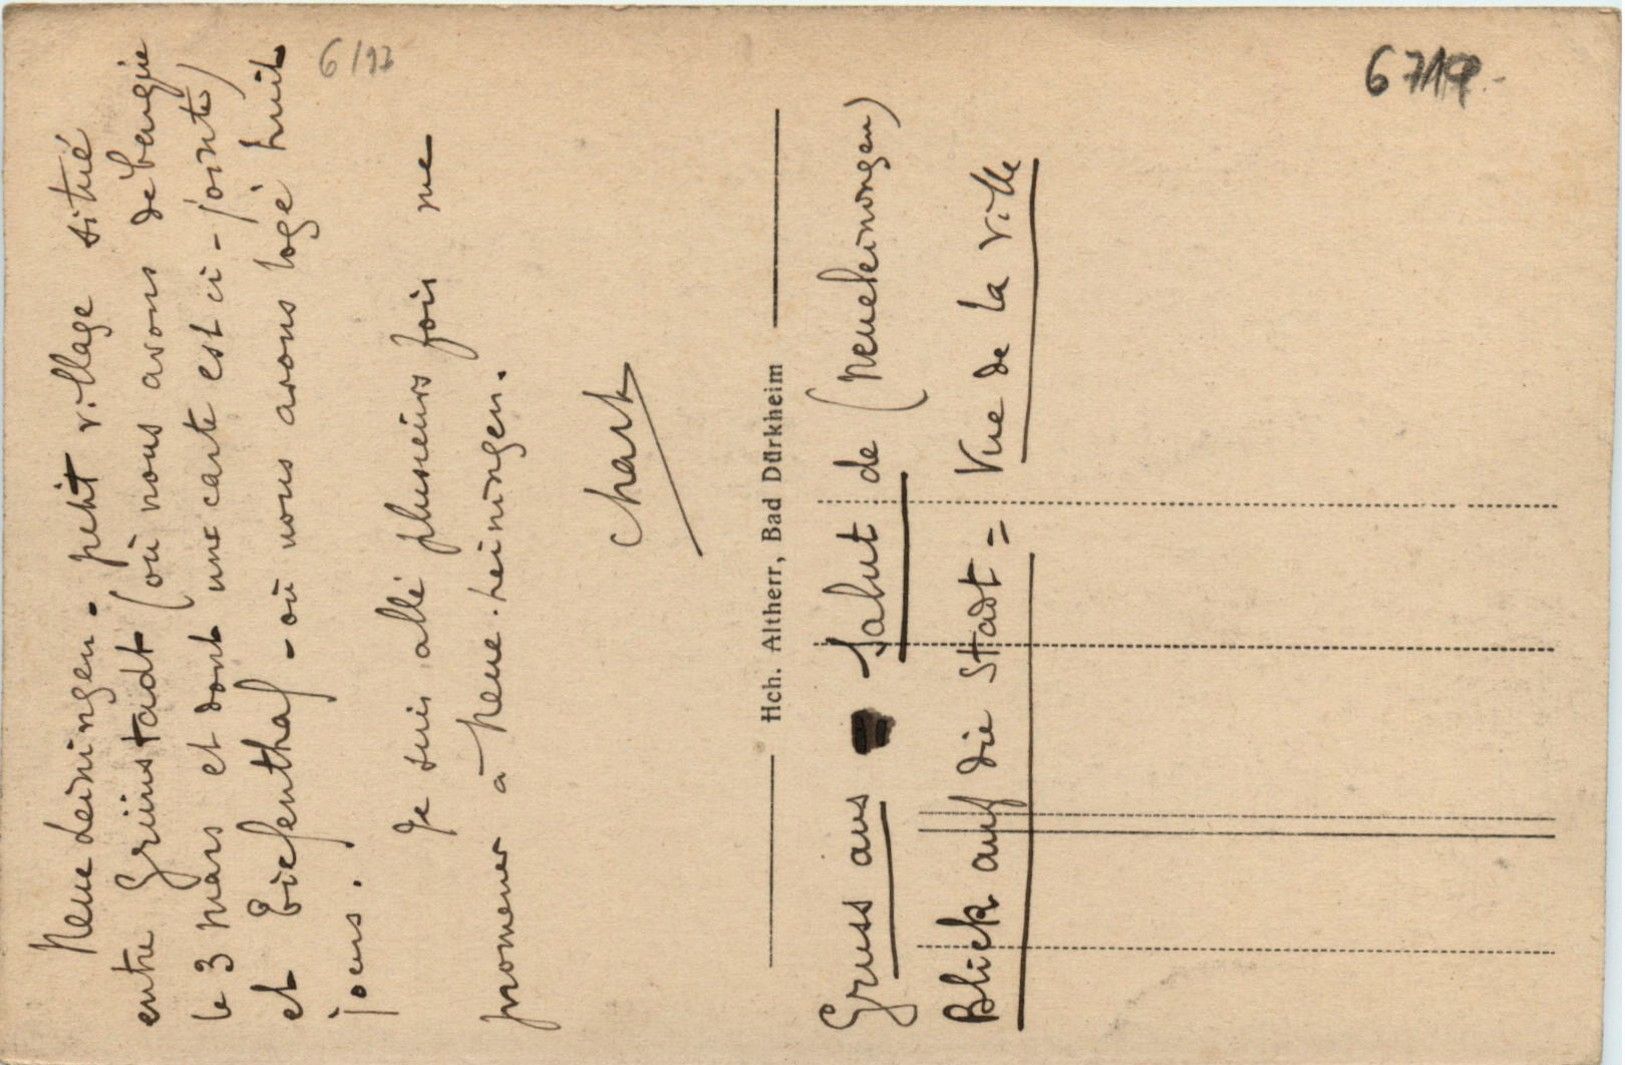 Neue Leiningen - petit village situé
entre Grünstadt (où nous avons débarqué
le 3 mars et dont une carte est ci-jointe)
et - où nous avons logé huit
jours.
Je suis allé plusieurs fois me
promener à Neue-Leiningen.
Hch. Altherr, Bad Dürkheim
Gruss aus Salut de (Neueleiningen)
Blick auf die Stadt = Vue de la ville
6/97